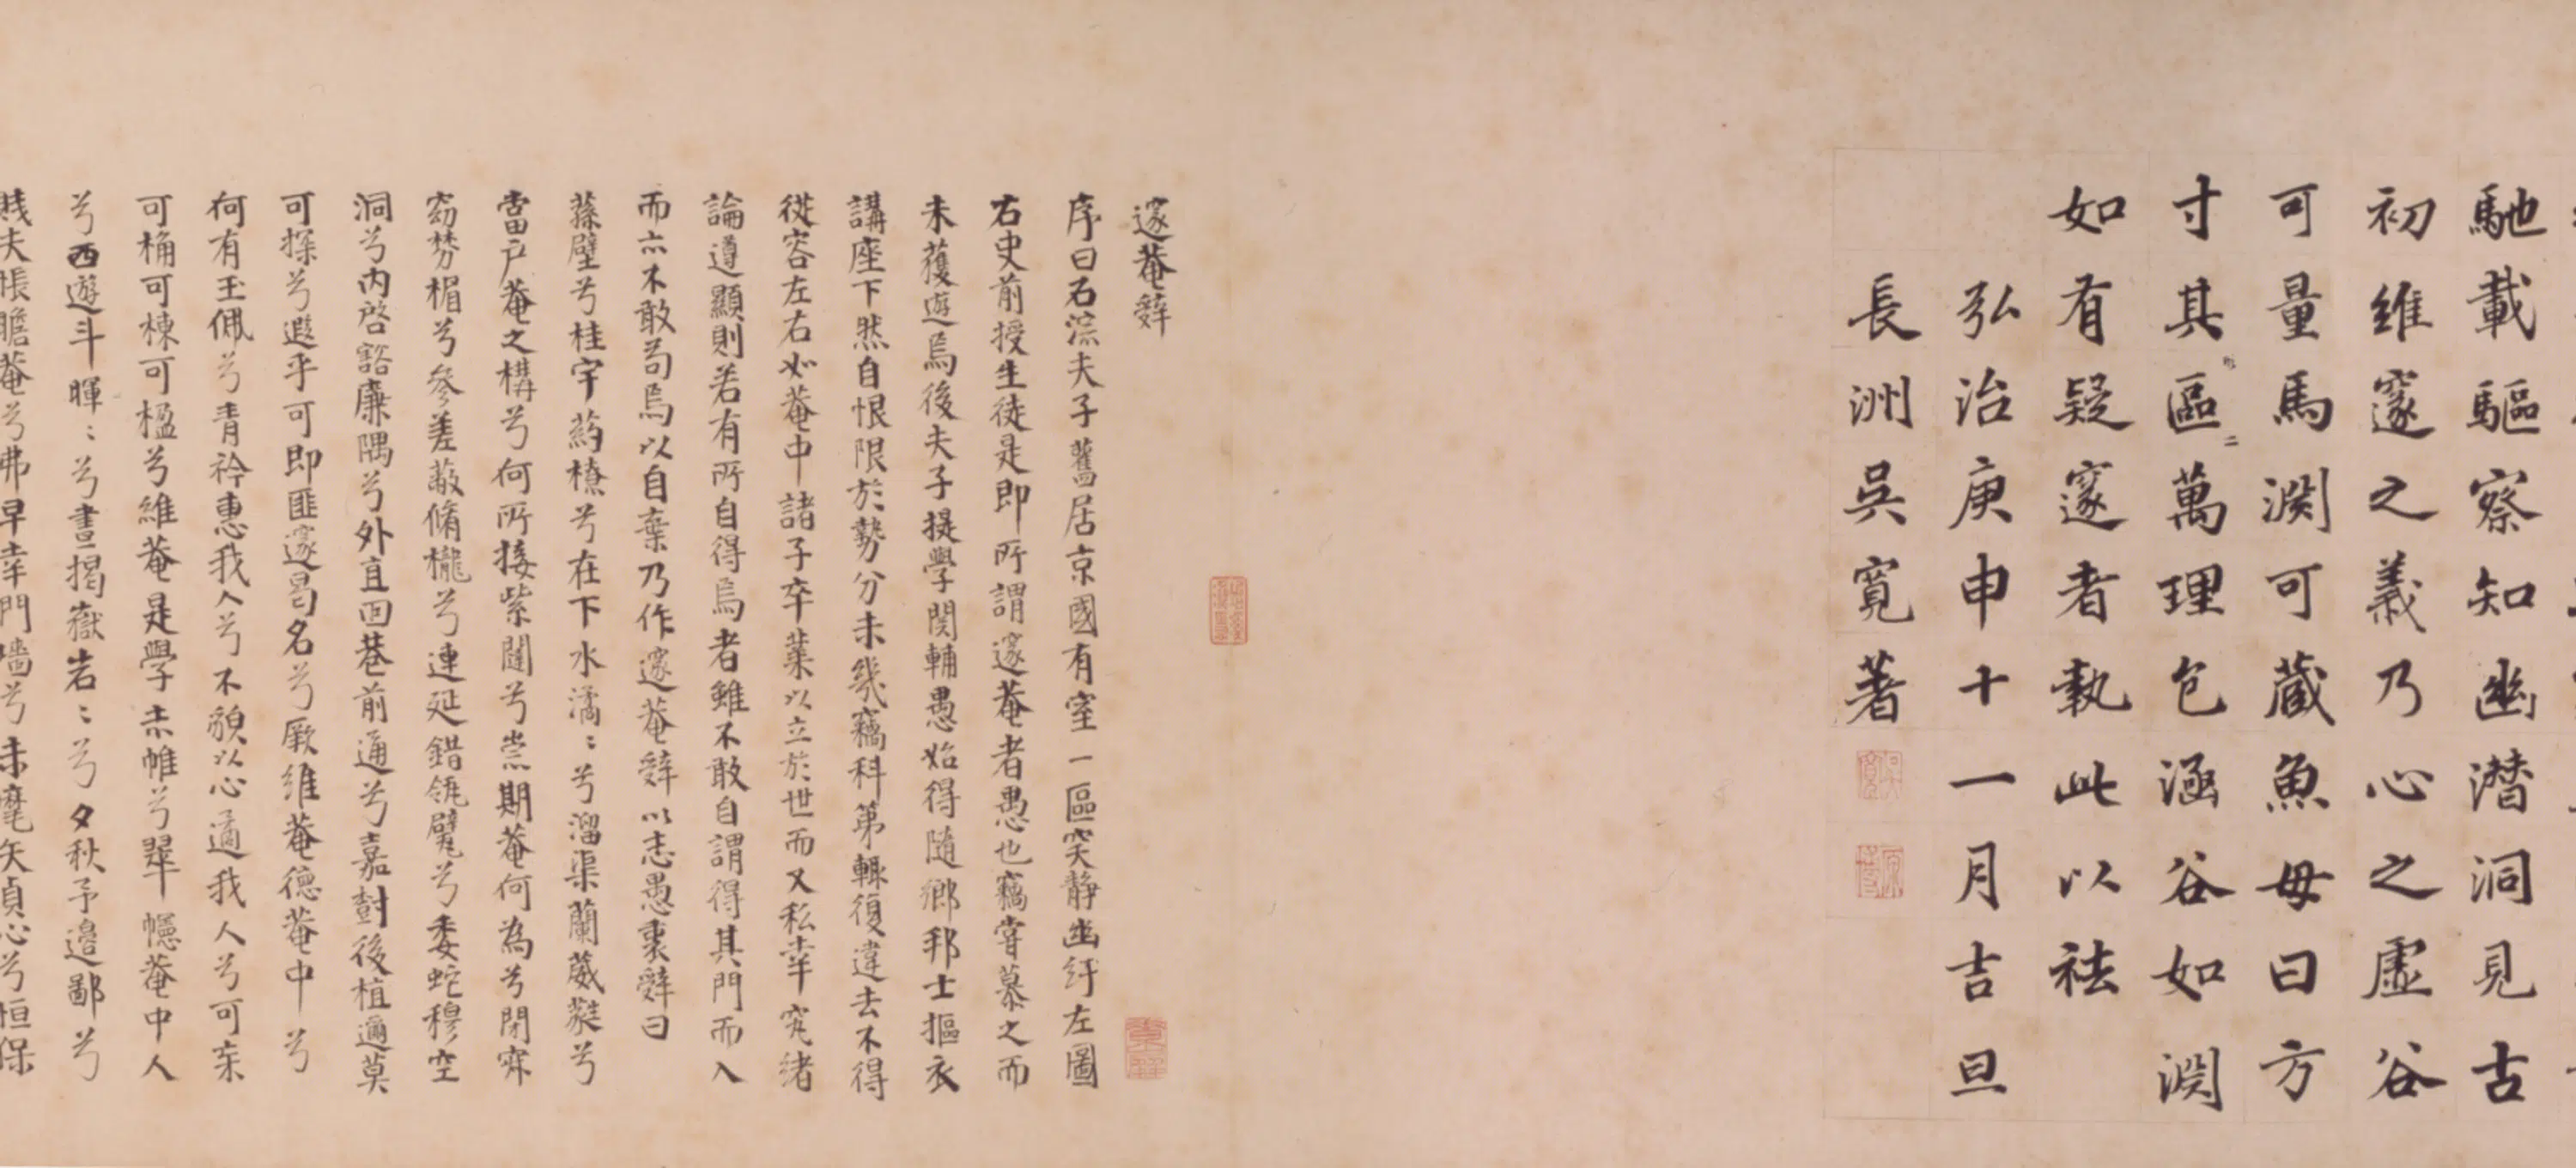 馳載驅察知幽潛洞見古
初維邃之義乃心之虛谷
可量馬淵可藏魚毋曰方
寸其區二萬理包涵谷如淵
如有疑邃者執此以祛
弘治庚申十一月吉旦
長洲吳寬著
吳寬
原博
邃菴辭
序曰石淙夫子舊居京國有室一區突靜幽紆左圖
右史前授生徒是即所謂邃菴者愚也竊嘗慕之而
未獲遊焉後夫子提學関輔愚始得隨鄉邦士摳衣
講座下然自恨限於勢分未幾竊科第輒復違去不得
從容左右如菴中諸子卒業以立於世而又私幸究緒
論遵顯則若有所自得焉者雖不敢自謂得其門而入
而亦不敢苟焉以自棄乃作邃菴辭以志愚衷辭曰
蓀壁兮桂宇葯橑兮在下水潏〻兮溜渠蘭葳蕤兮
當戶菴之構兮何所接紫闥兮崇期菴何為兮閉寂
窈棼楣兮參差蔽脩櫳兮連延錯瓴甓兮委蛇穆空
洞兮內啓豁廉隅兮外直回巷前通兮嘉尌後植邇莫
可探兮遐乎可即匪邃曷名兮厥維菴德菴中兮
何有玉佩兮青衿惠我人兮不貌以心適我人兮可亲
可桷可棟可楹兮維菴是學赤帷兮翠幰菴中人
兮西遊斗暉〻兮晝揭嶽岩〻兮夕秋予邉鄙兮
賤夫悵瞻菴兮弗早幸門墻兮未麾矢貞心兮恒保